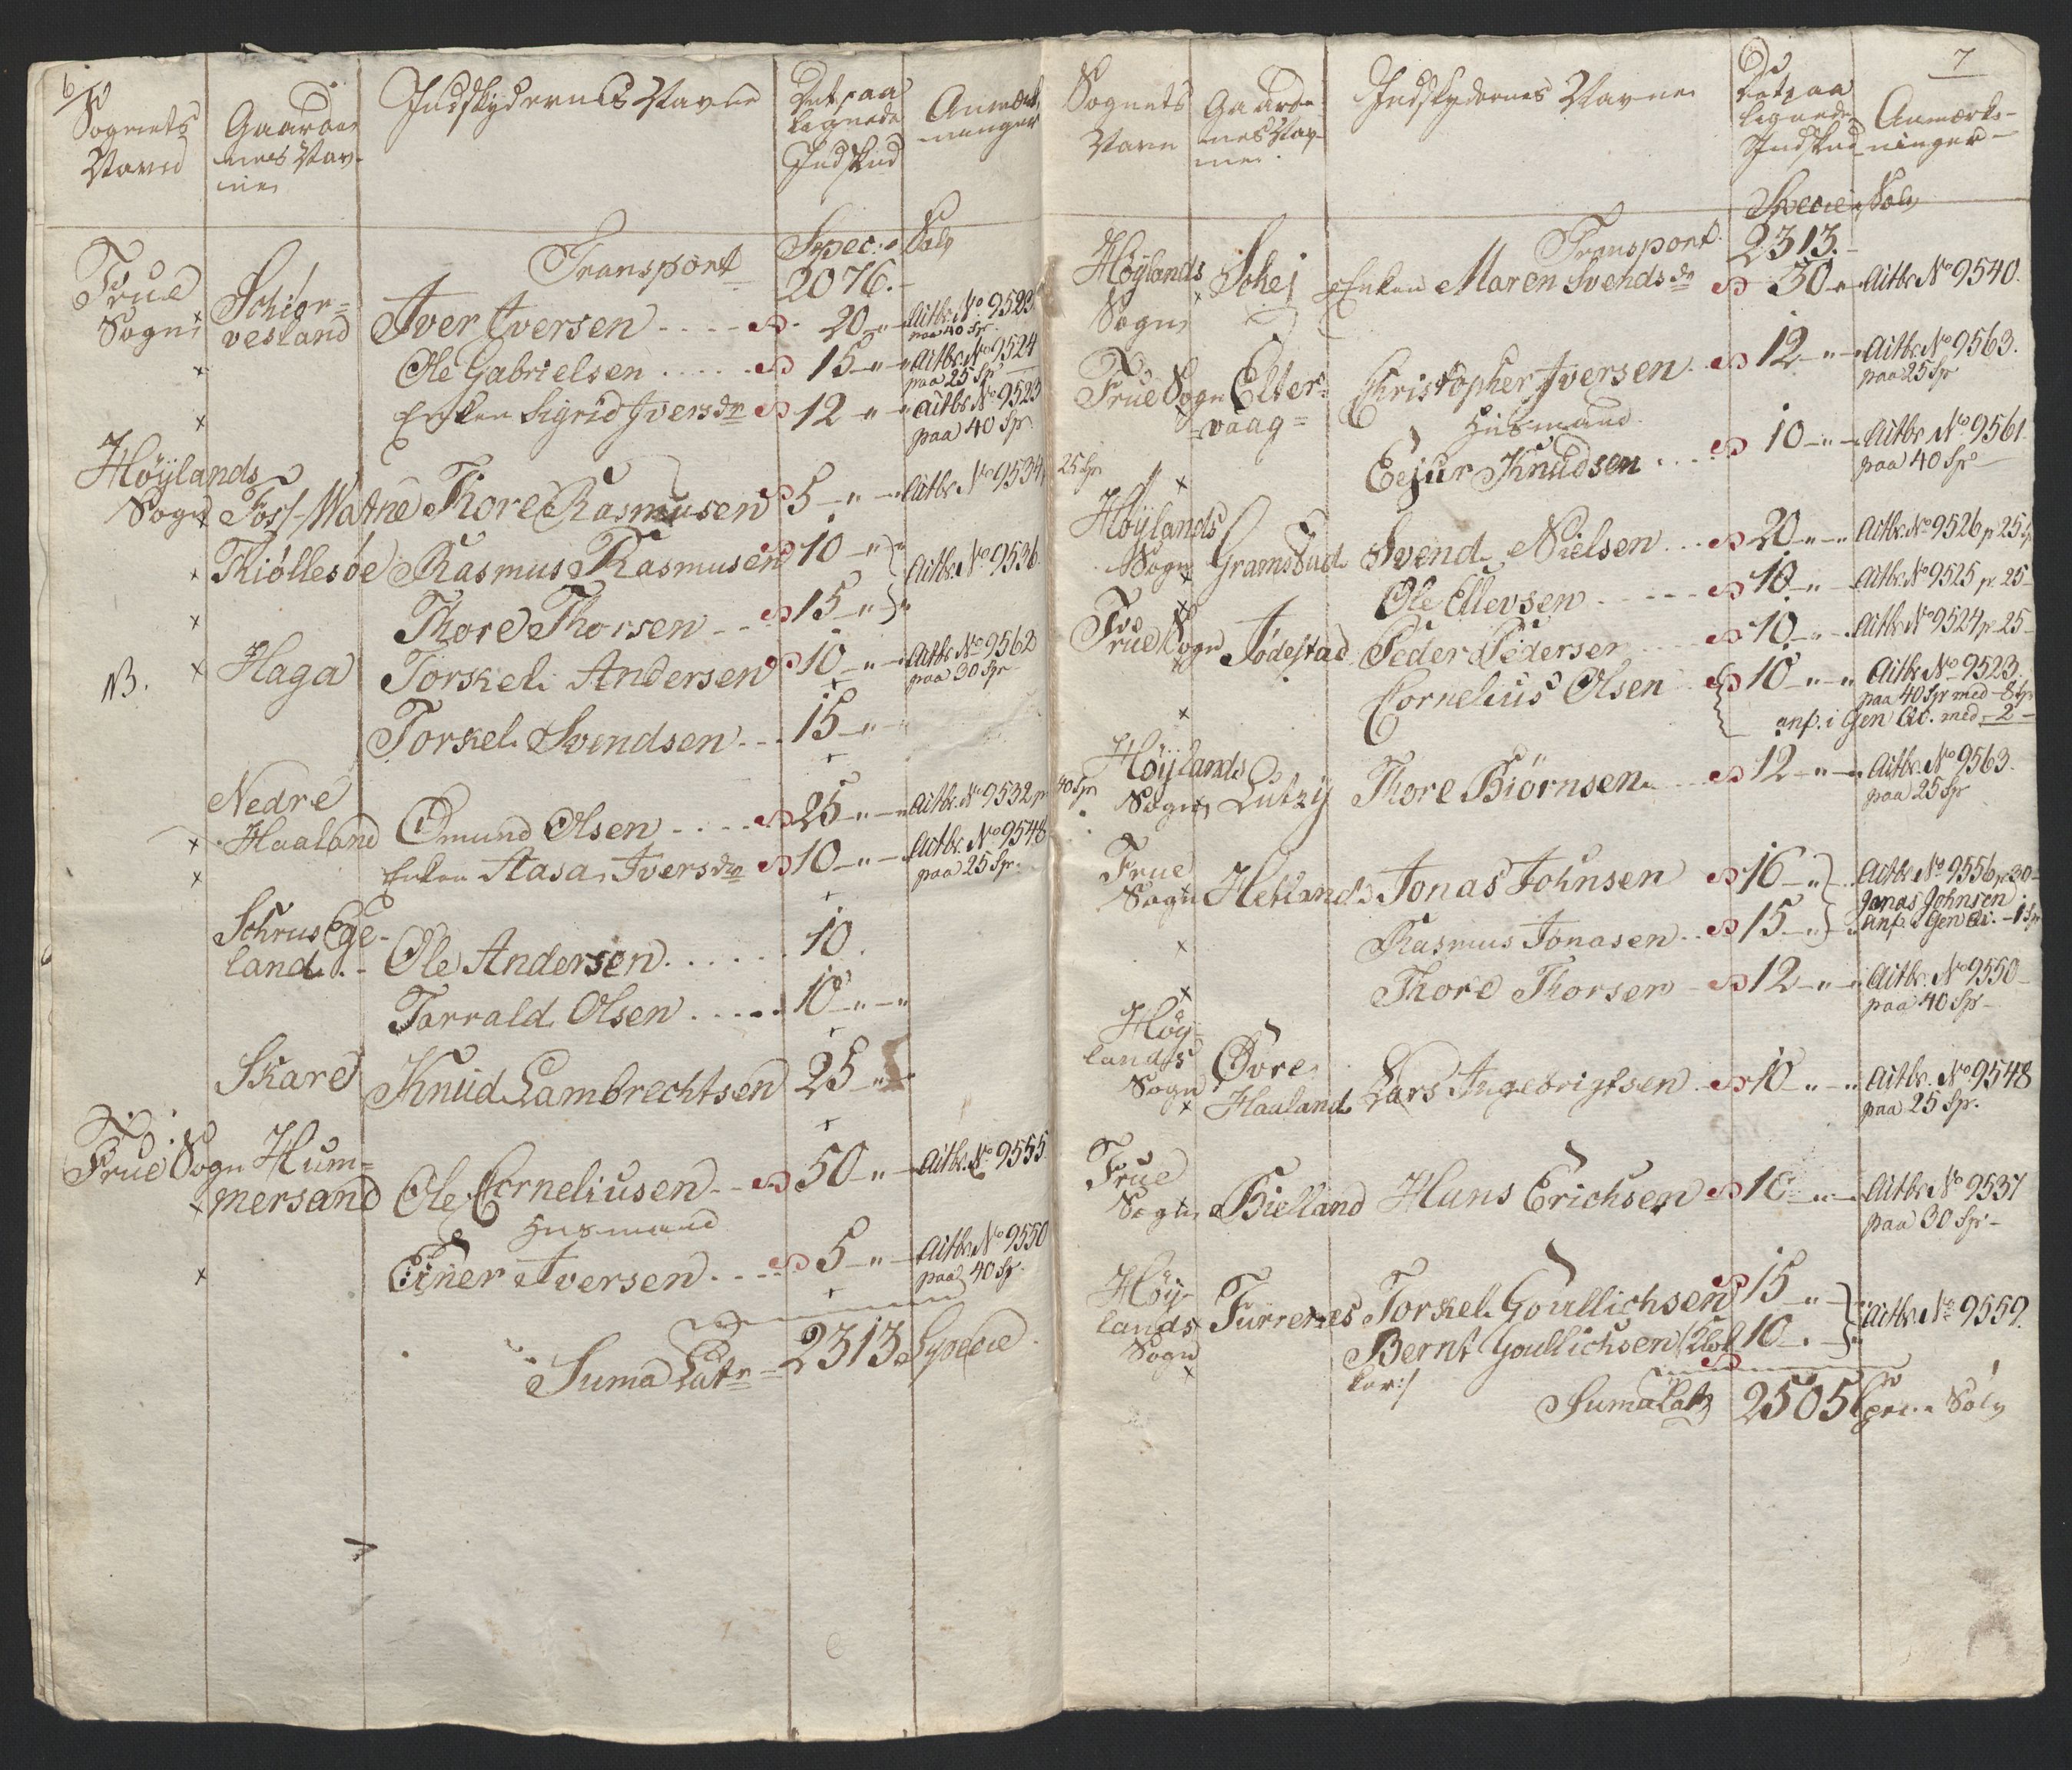 6
Sognets Navn | Gaardenes Navne | Indskydernes Navne | Det paalignede Indskud | Anmærkninger
Transport | Spec: Sølv 2076.-
Frue Sogn | Schiørvesland | Iver Iversen | 20 | Actbr. No 9523 paa 40 Sp.
Ole Gabrielsen | 15 | Actbr. No 9524 paa 25 Sp
Enken Sigrid Iversdr | 12 | Actbr. No 9525 paa 40 Sp.
Høylands Sogn | Foss-Watne | Thore Rasmusen | 5 | Actbr. No 9534 25 Sp.
Kiøllesøe | Rasmus Rasmusen | 10
Thore Thorsen | 15 | Actbr. No 9536
NB. | Haga | Torskel Andersen | 10 | Actbr. No 9562 paa 30 Sp
Torskel Svendsen | 15
Nedre Haaland | Omund Olsen | 25 | Actbr. No 9532 p 40 Sp
Enken Aasa Iversdr | 10 | Actbr. No 9548 paa 25 Sp.
Schrus Egeland | Ole Andersen | 10
Tarrald Olsen | 10
Skare | Knud Lambrechtsen | 25
Frue Sogn | Hummersand | Ole Corneliusen | 50 | Actbr. No 9555
Husmand
Einer Iversen | 5 | Actbr. No 9550 paa 40 Sp.
Suma Latr | 2313 Specie
7
Sognets Navn | Gaardenes Navne | Indskydernes Navne | Det paalignede Indskud | Anmærkninger
Transport | Specie Sølv 2313.-
Høylands Sogn | Schei | Enken Maren Svendsdr | 30 | Actbr No 9540.
Frue Sogn | Eltervaag | Christopher Iversen | 12 | Actbr. No 9563. paa 25 Sp
Husmand
Eejur Knudsen | 10 | Actbr No 9561. paa 40 Sp
Høylands Sogn | Gramstad | Svend Nielsen | 20 | Actbr. No 9526 p 25 Sp
Ole Ellevsen | 10 | Actbr. No 9525 p. 25
Frue Sogn | Jødestad | Peder Pedersen | 10 | Actbr. No 9524 p. 25
Cornelius Olsen | 10 | Actbr. No 9523. paa 40 Sp med 8 Sp
anf. i Gen Qv. med 2
Høylands Sogn | Lutzy | Thore Biørnsen | 12 | Actbr. No 9563. paa 25 Sp
Frue Sogn | Hetland | Jonas Johnsen | 16 | Actbr No 9556 p 30
Jonas Johnsen anf. i Gen Qv. 1 Sp
Rasmus Jonasen | 15
Thore Thorsen | 12 | Actbr. No 9550 paa 40 Sp
Høylands Sogn | Øvre Haaland | Lars Ingebrigtsen | 10 | Actbr. No 9548 paa 25 Sp.
Frue Sogn | Bielland | Hans Erichsen | 10 | Actbr No 9537 paa 30 Sp
Høylands Sogn | Furrenes | Torskel Goullichsen | 15
Bernt Goullichsen /: Klokker :/ | 10 | Actbr. No 9559.
Suma Latr | 2505 Specie Sølv